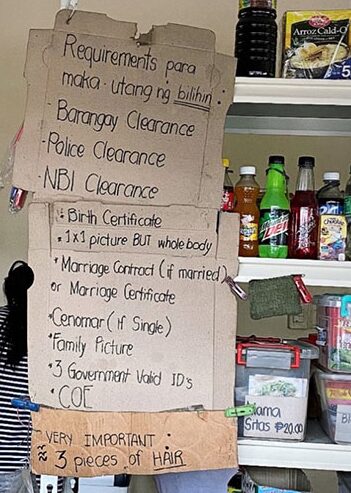 Requirements para
maka-utang ng bilihin:
• Barangay Clearance
• Police Clearance
• NBI Clearance
• Birth Certificate
• 1x1 picture BUT whole body
• Marriage Contract (if married)
or Marriage Certificate
• Cenomar (if Single)
• Family Picture
• 3 Government Valid ID's
• COE
VERY IMPORTANT:
3 pieces of HAIR
Arroz Cald-O
Mama
Sitas ₱20.00